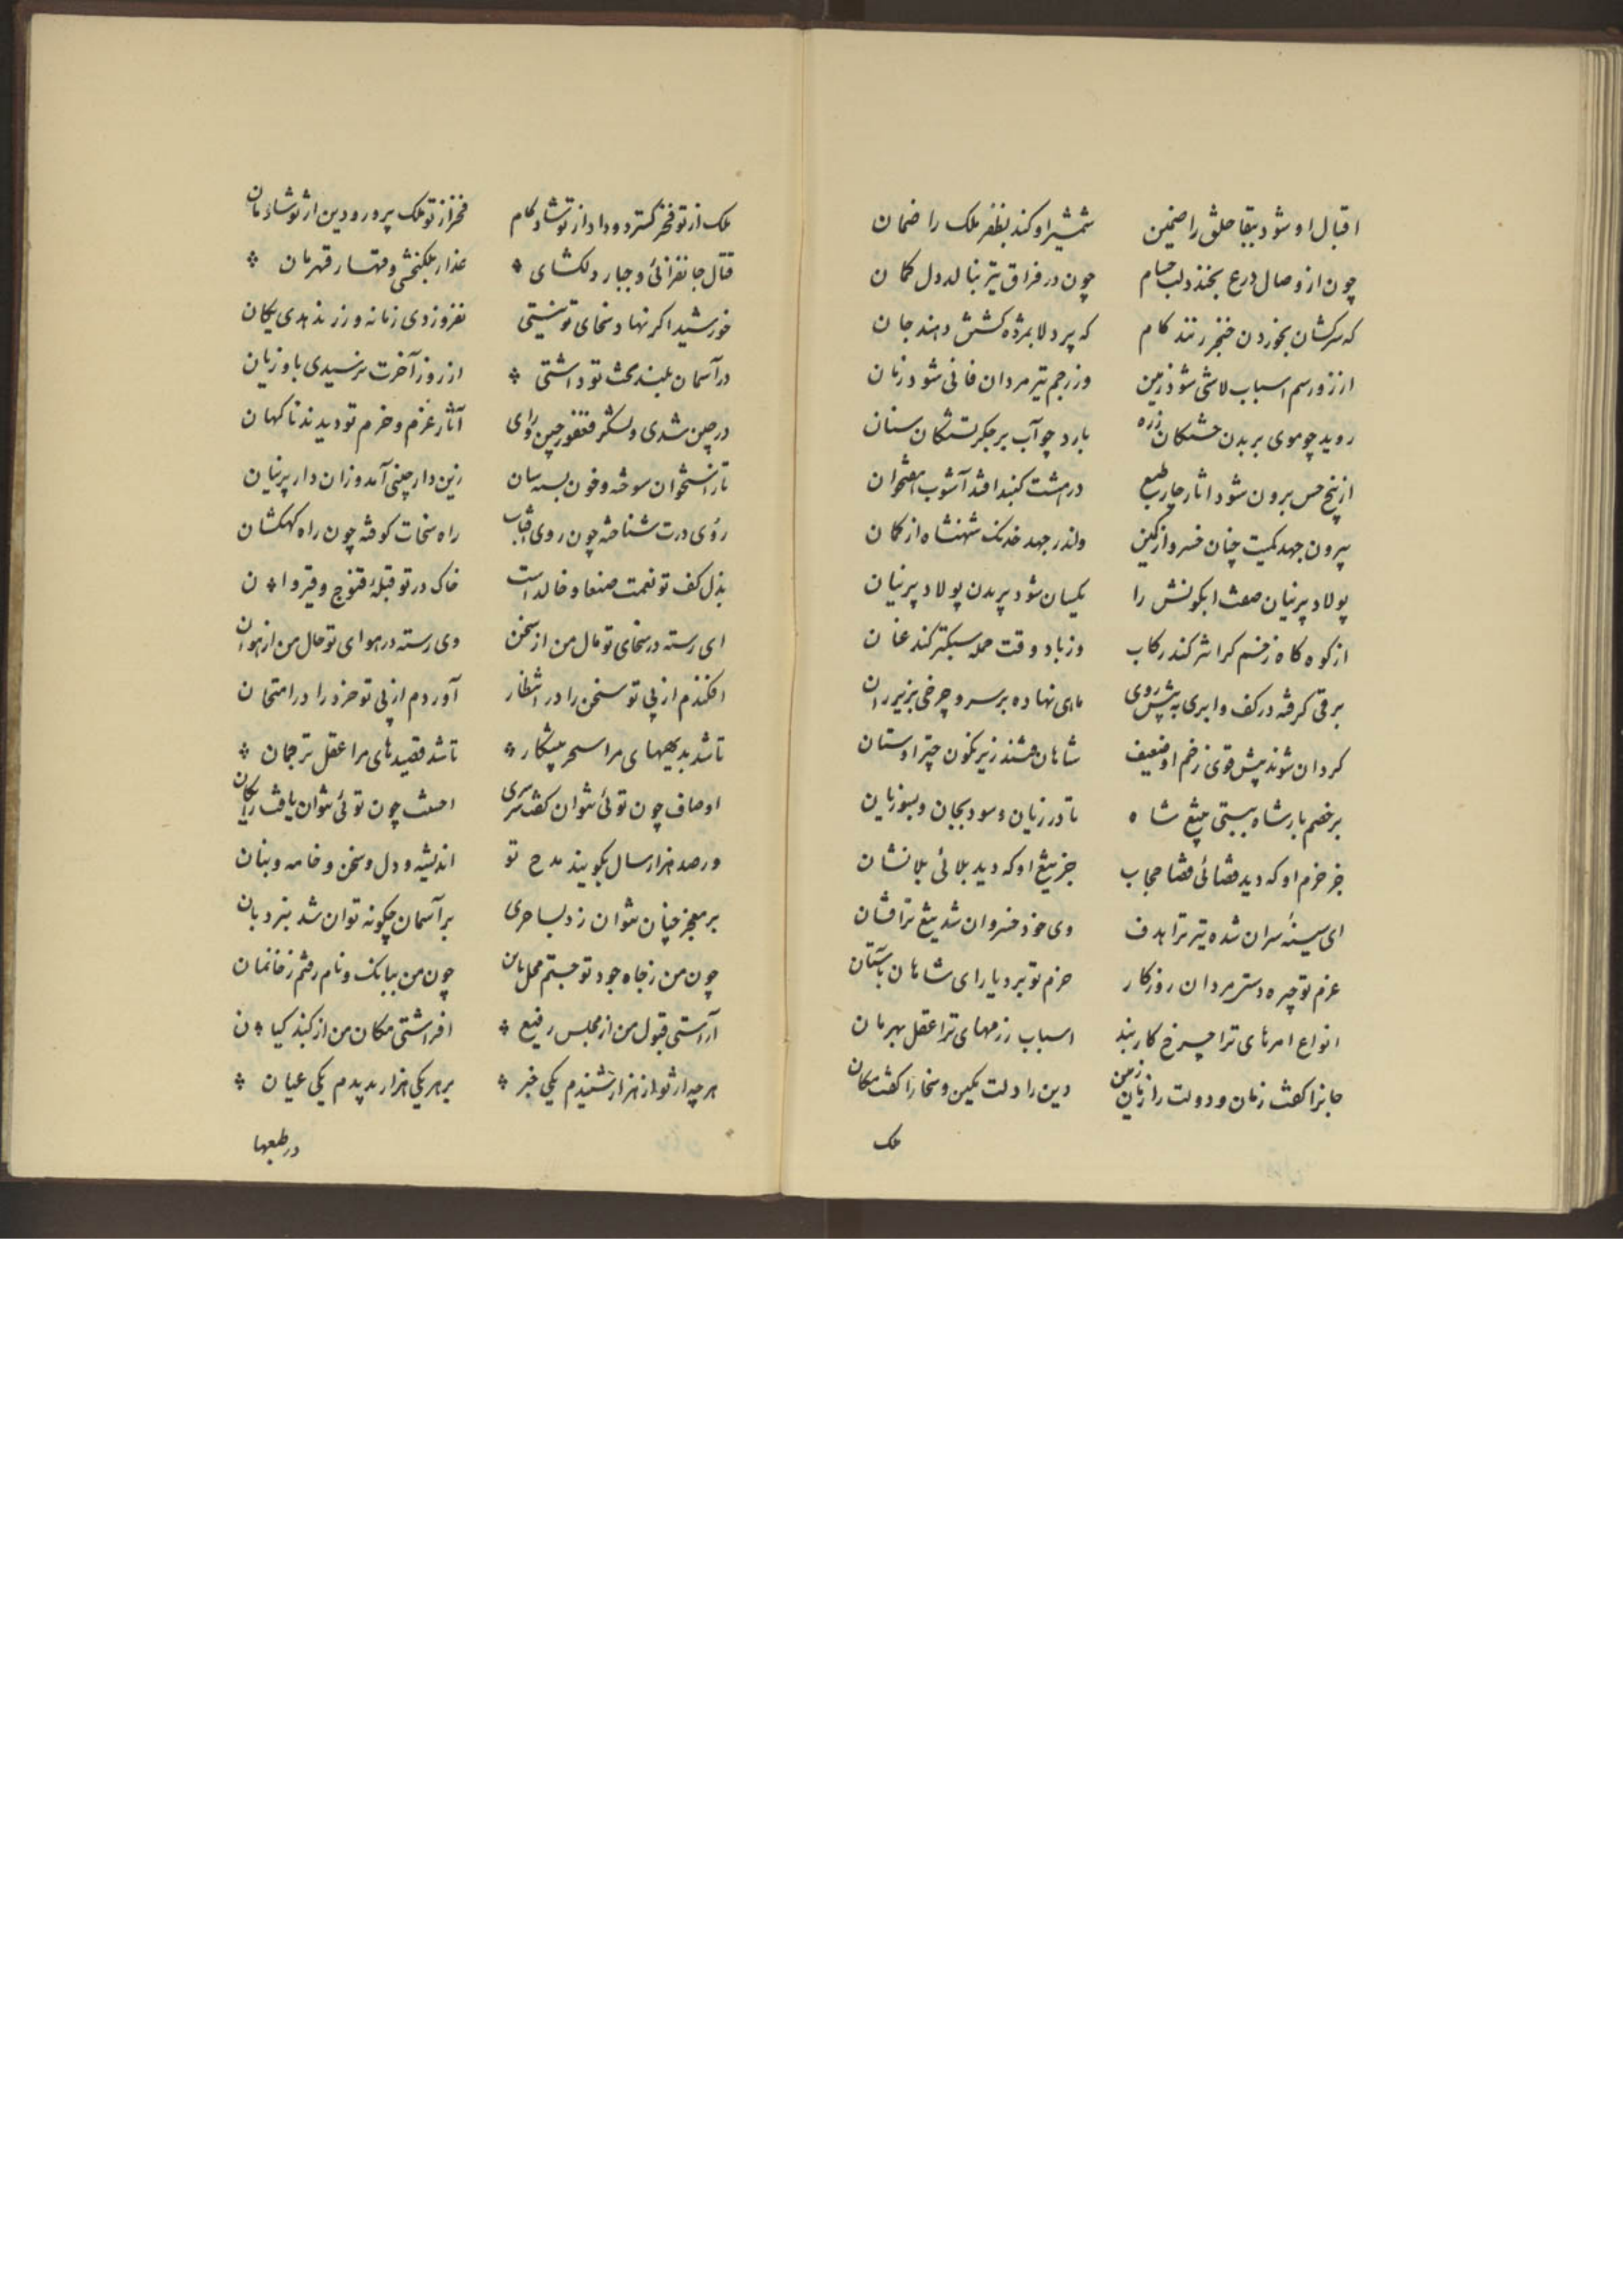 اقبال او شود ببقا خلق را ضمین شمشیر او کند بظفر ملک را ضمان
چون از وصال درع بخندد لب حسام چون در فراق تیر بنالد دل کمان
که سرکشان بخوردن خنجر زنند کام که پردلان بمژده کشش دهند جان
از زور سم اسباب لاشی شود زمین وز رجم تیر مردان فانی شود زمان
روید چو موی بر بدن خستگان زره بارد چو آب بر جگر تشنگان سنان
از پنج حس برون شود اثار چار طبع در هشت گنبد افتد آشوب هفتخوان
بیرون جهد کمیت چنان خسرو از کمین واندر جهد خدنک شهنشاه از کمان
پولاد پرنیان صفت ابکونش را یکسان شود پریدن پولاد پرنیان
از کوه کاه زخم کرانتر کند رکاب وز باد وقت حمله سبکتر کند عنان
برقی کرفته در کف و ابری به پیش روی ماهی نهاده بر سر و چرخی بزیر ران
کردان شوند پیش قوی زخم او ضعیف شاهان زیر نکون چتر اوستان
بر خصم بار شاه ببستی میغ شاه تا در زیان و سود بجان و بسوزیان
جز خرم او که دید قضائی قضا حجاب جز تیغ او که دید بلائی بلا نشان
ای سینه سران شده تیر ترا هدف وی خود خسروان شد تیغ ترا فسان
عزم تو چیره دستر مردان روزکار حزم تو برد یارای شاهان باستان
انواع امرهای ترا چرخ کاربند اسباب رزمهای ترا عقل بهرمان
جانرا کفت زمان و دولت را زمین دین را دلت یمین و سخا را کفت مکان
ملک
ملک از تو فخر کسترد و داد از تو شادکام فخر از تو ملک پرور و دین از تو شادمان
قتال جانفزائی و جبار دلکشای غدار ملکبخشی و قهار قهرمان
خورشید اکر نهاد سخای تو نیستی نفروزدی زمانه و زر ندهدی بکان
در آسمان بلند بخت تو داشتی از روز آخرت نرسیدی باو زیان
در چین شدی و لشکر فغفور چین و رای آثار عزم و حزم تو دیدند ناکهان
تا ز استخوان سوخته و خون بسته سان زین دار چینی آمد و زان دار پرنیان
روی درت شناخته چون روی آفتاب راه سخات کوفته چون راه کهکشان
بذل کف تو نعمت صنعا و خالداست خاک در تو قبله قنوج و قیروان
ای رسته در سخای تو مال من از سخن وی رسته در هوای تو حال من از هوان
افکندم از پی تو سخن را در انتظار آوردم از پی تو خرد را در امتحان
تا شد بدیههای مرا سحر پیشکار تا شد قصیدهای مرا عقل ترجمان
اوصاف چون توئی نتوان کفت سرسری چون توئی نتوان یافت رایکان
ور صد هزار سال بکویند مدح تو اندیشه و دل و سخن و خامه و بنان
بر معجز چنان نتوان زد بساحری بر آسمان چکونه توان شد بنردبان
چون من ز جاه جود تو جستم محل چون من ببانک و نام رفتم ز خانمان
آراستی قبول من از مجلس رفیع افراشتی مکان من از کنبد کیان
هر چه از تو از هزار شنیدم یکی خبر بر هر یکی هزار بدیدم یکی عیان
در طبعها